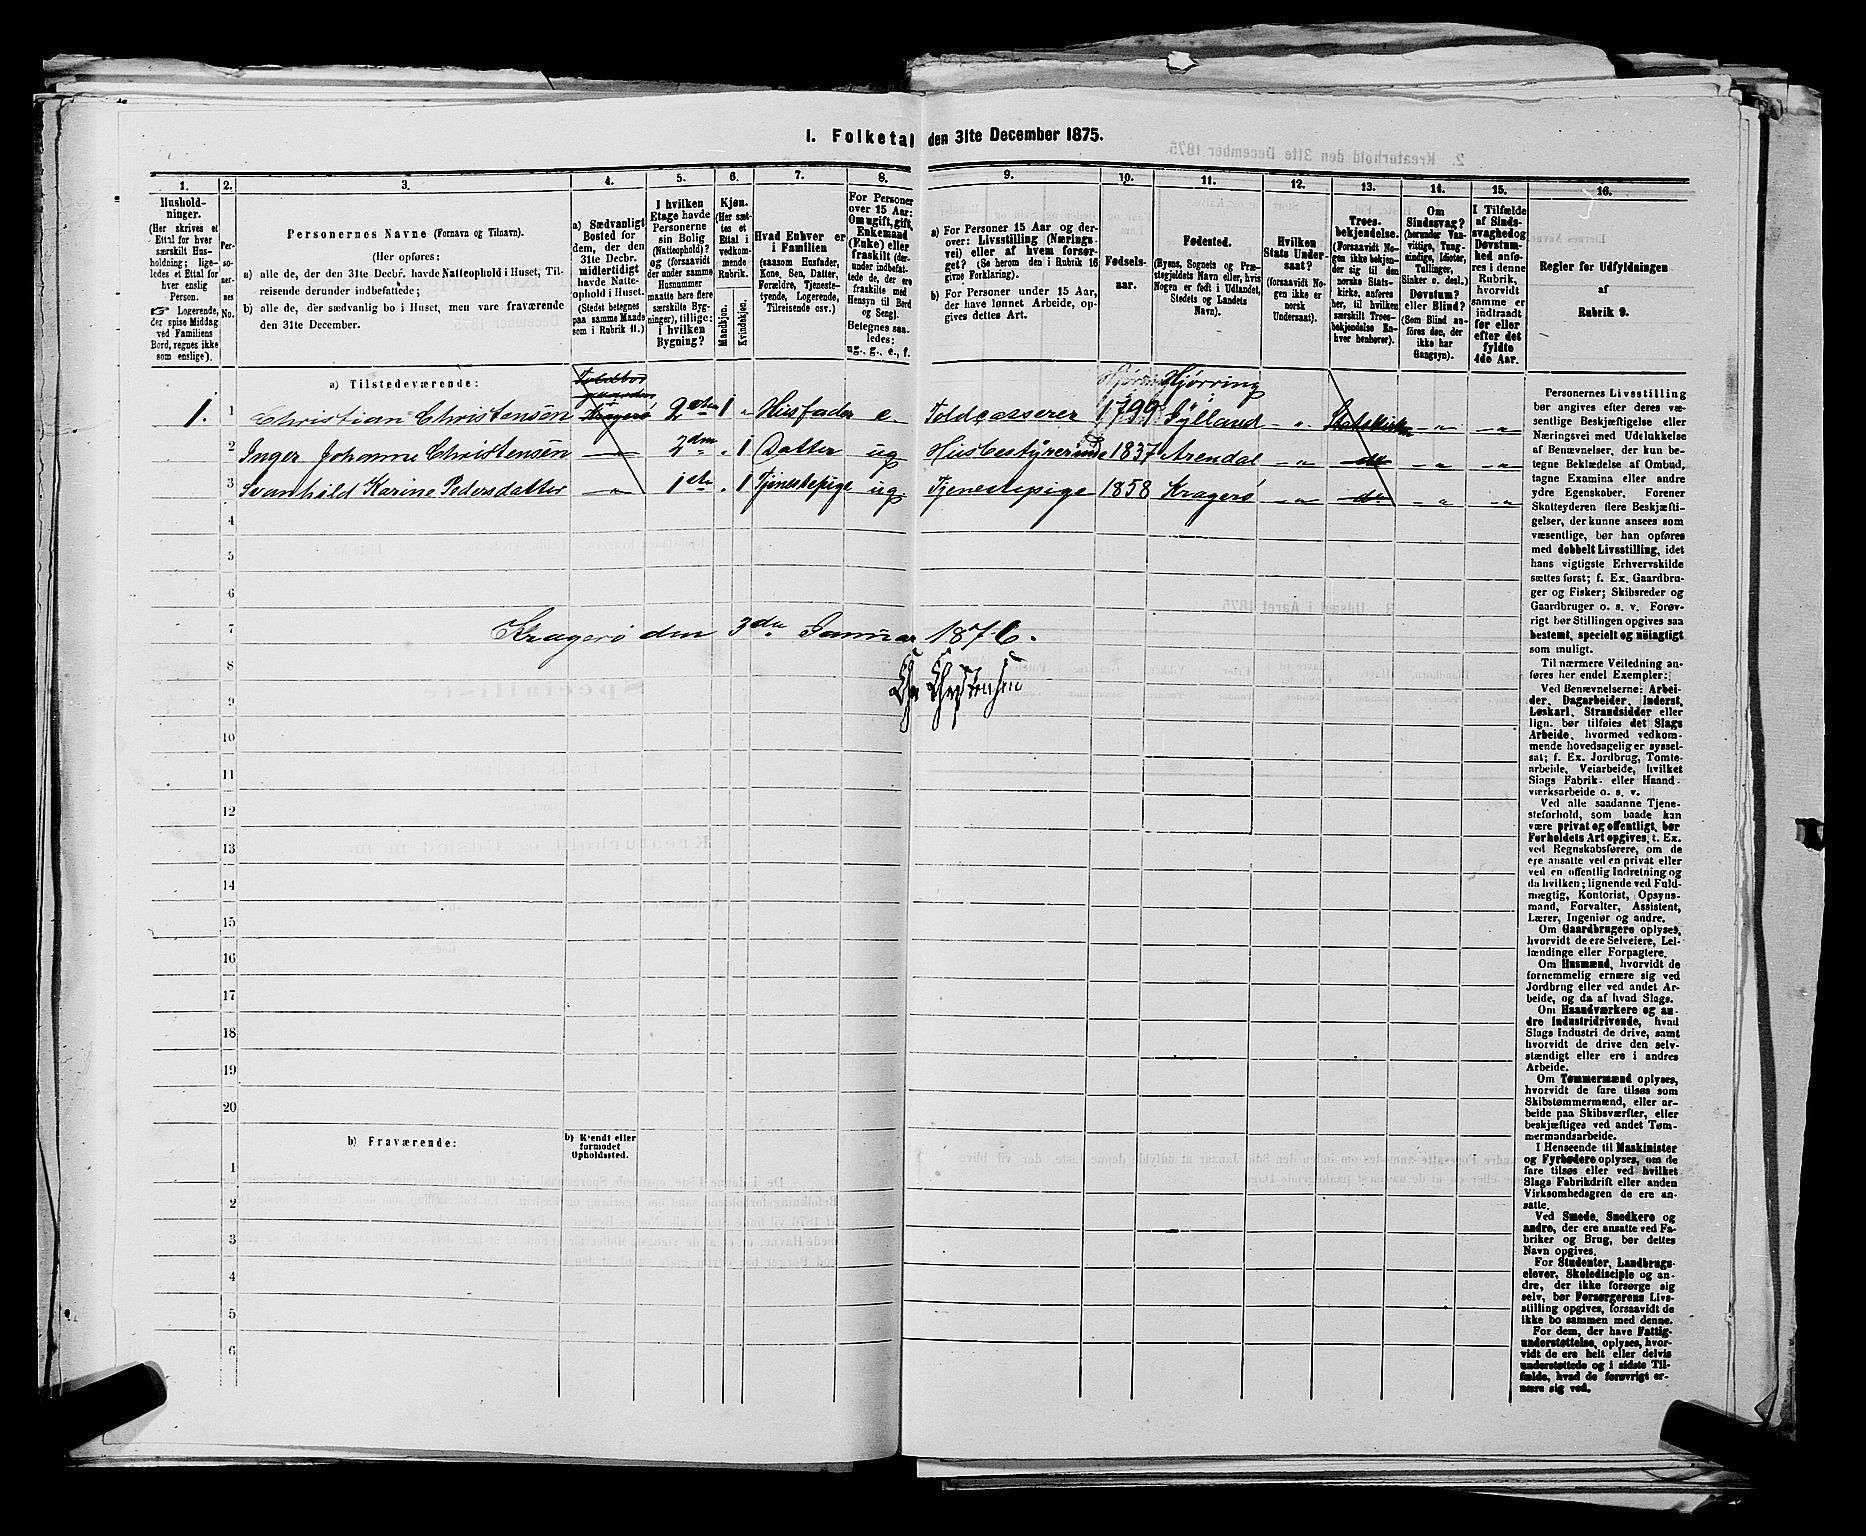 I. Folketal den 31te December 1875.
1. 2. 3. 4. 5. 6. 7. 8. 9. 10. 11. 12. 13. 14. 15. 16.
Hushold-
ninger.
(Her skrives et
Ettal for hver
særskilt Hus-
holdning; lige-
ledes et Ettal for
hver enslig
Person.
☞ Logerende,
der spise Middag
ved Familiens
Bord, regnes ikke
som enslige).
Per-
so-
ner-
nes
No.
Personernes Navne (Fornavn og Tilnavn).
(Her opføres:
a) alle de, der den 31te Decbr. havde Natteophold i Huset, Til-
reisende derunder indbefattede;
b) alle de, der sædvanlig bo i Huset, men vare fraværende
den 31te December.
a) Sædvanligt
Bosted for
dem, der den
31te Decbr.
midlertidigt
havde Natte-
ophold i Huset.
(Stedet betegnes
paa samme Maade
som i Rubrik 11.)
I hvilken
Etage havde
Personerne
sin Bolig
(Natteophold)?
og (forsaavidt
der under samme
Husnummer
maatte høre flere
særskilte Byg-
ninger), tillige:
i hvilken
Bygning?
Kjøn.
(Her sæt-
tes et
Ettal i
vedkom-
mende
Rubrik.
Mandkjøn.
Kvindekjøn.
Hvad Enhver er
i Familien
(saasom Husfader,
Kone, Søn, Datter,
Forældre, Tjeneste-
tyende, Logerende,
Tilreisende osv.)
For Personer
over 15 Aar:
Om ugift, gift,
Enkemand
(Enke) eller
fraskilt (der-
under indbefat-
tede de, der ere
fraskilte med
Hensyn til Bord
og Seng).
Betegnes saa-
ledes:
ug., g., e., f.
a) For Personer 15 Aar og der-
over: Livsstilling (Nærings-
vei) eller af hvem forsør-
get? (Se herom den i Rubrik 16
givne Forklaring).
b) For Personer under 15 Aar,
der have lønnet Arbeide, op-
gives dettes Art.
Fødsels-
aar.
Fødested.
(Byens, Sognets og Præ-
stegjeldets Navn eller, hvis
Nogen er født i Udlandet,
Stedets og Landets
Navn).
Hvilken
Stats Under-
saat?
(forsaavidt No-
gen ikke er
norsk
Undersaat).
Troes-
bekjendelse.
(Forsaavidt No-
gen ikke bekjen-
der sig til den
norske Stats-
kirke, anføres
her, til hvilken
særskilt Troes-
bekjendelse En-
hver henhører).
Om
Sindssvag?
(herunder Van-
vittige, Tung-
sindige, Idioter,
Tullinger,
Sinker o. desl.)
Døvstum?
eller Blind?
(Som Blind an-
føres den, der
ikke har
Gangsyn).
I Tilfælde
af Sinds-
svaghed og
Døvstum-
hed anfø-
res i denne
Rubrik,
hvorvidt
samme er
indtraadt
før eller
efter det
fyldte
4de Aar.
Regler for Udfyldningen
af
Rubrik 9.
a) Tilstedeværende:
Toldbod
gaarden
Kragerø
Hjørring
1. 1 Christian Christensen 2den 1 „ Husfader e. Toldcasserer 1799 Jylland „ Statskirken „ „
2 Inger Johanne Christensen „ 2den „ 1 Datter ug Husbestyrerinde 1837 Arendal „ do „ „
3 Svanhild Karine Pedersdatter „ 1ste „ 1 Tjenestepige ug. Tjenestepige 1858 Kragerø „ do „ „
4
5
6
7 Kragerø den 3die Januar 1876.
8 Chr Christensen
9
10
11
12
13
14
15
16
17
18
19
20
b) Fraværende:
b) Kjendt eller
formodet
Opholdssted.
1
2
3
4
5
6
Personernes Livsstilling
bør angives efter deres væ-
sentlige Beskjæftigelse eller
Næringsvei med Udelukkelse
af Benævnelser, der kun be-
tegne Beklædelse af Ombud,
tagne Examina eller andre
ydre Egenskaber. Forener
Skatteyderen flere Beskjæfti-
gelser, der kunne ansees som
væsentlige, bør han opføres
med dobbelt Livsstilling, idet
hans vigtigste Erhvervskilde
sættes først; f. Ex. Gaardbru-
ger og Fisker; Skibsreder og
Gaardbruger o. s. v. Forøv-
rigt bør Stillingen opgives saa
bestemt, specielt og nøiagtigt
som muligt.
Til nærmere Veiledning an-
føres her endel Exempler:
Ved Benævnelserne: Arbei-
der, Dagarbeider, Inderst,
Løskarl, Strandsidder eller
lign. bør tilføies det Slags
Arbeide, hvormed vedkom-
mende hovedsagelig er syssel-
sat; f. Ex. Jordbrug, Tomte-
arbeide, Veiarbeide, hvilket
Slags Fabrik- eller Haand-
værksarbeide o. s. v.
Ved alle saadanne Tjene-
steforhold, som baade kan
være privat og offentligt, bør
Forholdets Art opgives, t. Ex.
ved Regnskabsførere, om de
ere ansatte ved en privat eller
ved en offentlig Indretning og
da hvilken; lignende ved Fuld-
mægtig, Kontorist, Opsyns-
mand, Forvalter, Assistent,
Lærer, Ingeniør og andre.
Om Gaardbrugere oplyses,
hvorvidt de ere Selveiere, Lei-
lændinge eller Forpagtere.
Om Husmænd, hvorvidt de
fornemmelig ernære sig ved
Jordbrug eller ved andet Ar-
beide, og da af hvad Slags.
Om Haandværkere og an-
dre Industridrivende, hvad
Slags Industri de drive, samt
hvorvidt de drive den selv-
stændigt eller ere i andres
Arbeide.
Om Tømmermænd oplyses,
hvorvidt de fare tilsøs som
Skibstømmermænd, eller ar-
beide paa Skibsværfter, eller
beskjæftiges ved andet Tøm-
mermandsarbeide.
I Henseende til Maskinister
og Fyrbødere oplyses, om de
fare tilsøs eller ved hvilket
Slags Fabrikdrift eller anden
Virksomhedsgren de ere an-
satte.
Ved Smede, Snedkere og
andre, der ere ansatte ved Fa-
briker og Brug, bør dettes
Navn opgives.
For Studenter, Landbrugs-
elever, Skoledisciple og an-
dre, der ikke forsørge sig
selv, bør Forsørgerens Livs-
stilling opgives, forsaavidt de
ikke bo sammen med denne.
For dem, der have Fattig-
understøttelse, oplyses, hvor-
vidt de ere helt eller delvis
understøttede og i sidste Til-
fælde, hvad de forøvrigt er-
nære sig ved.